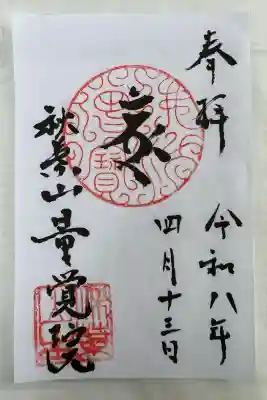 奉拝
令和八年
四月十三日
秋葉山量覚院